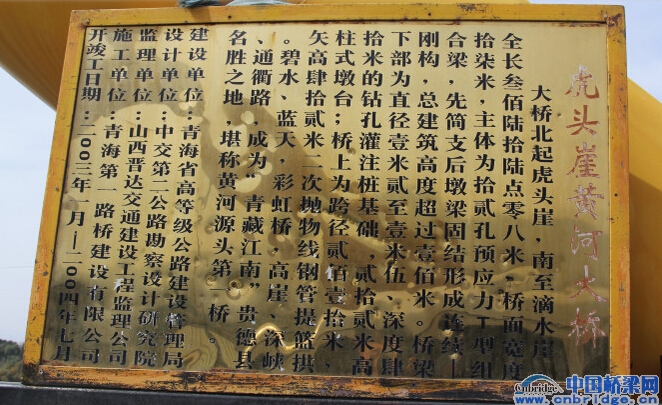 虎头崖黄河大桥
大桥北起虎头崖，南至滴水崖，
全长叁佰陆拾陆点零八米，桥面宽度
拾柒米，主体为拾贰孔预应力T型组
合梁，先简支后墩梁固结形成连续—
刚构，总建筑高度超过壹佰米。桥梁
下部为直径壹米贰至壹米伍、深度肆
拾米的钻孔灌注桩基础，贰拾贰米高
柱式墩台；桥上为跨径贰佰壹拾米、
矢高肆拾贰米二次抛物线钢管提篮拱
。碧水、蓝天，彩虹桥，高崖、深峡
、通衢路，成为“青藏江南”贵德县
名胜之地，堪称黄河源头第一桥。
建设单位：青海省高等级公路建设管理局
设计单位：中交第二公路勘察设计研究院
监理单位：山西晋达交通建设工程监理公司
施工单位：青海第一路桥建设有限公司
开竣工日期：二00三年一月—二00四年七月
中国桥梁网
www.cnbridge.cn
Cnbridge.cn